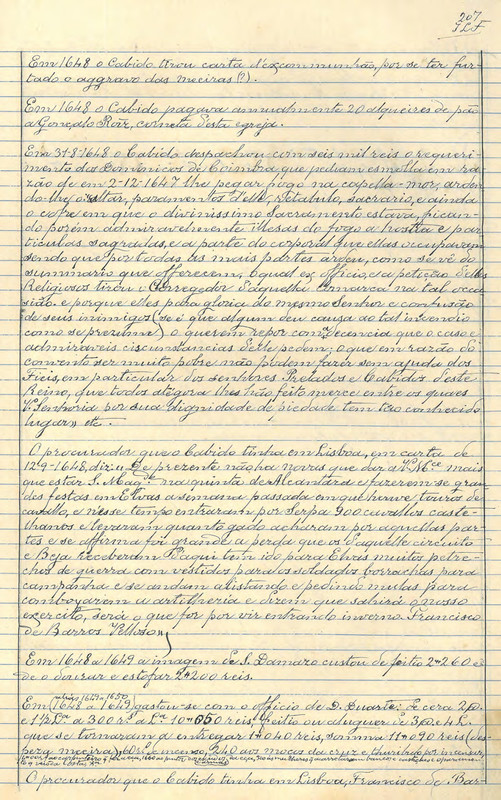 207
Em 1648 o Cabido tirou carta d'excommunhão, por se ter fur-
tado o aggravo das meciras (?).
Em 1648 o Cabido pagava annualmente 20 alqueires de pão
a Gonçalo Roiz, corneta desta egreja.
Em 31-8-1648 o Cabido despachou com seis mil reis o requeri-
mento dos Dominicos de Coimbra que pediam esmolla em ra-
zão de em 2-12-1647 lhe pegar fogo na capella-mor, arden-
do lhe o altar, paramentos d'elle, retabulo, sacrario, e ainda
o cofre em que o divinissimo Sacramento estava, fican-
do porém admiravelmente illesas do fogo a hostia e par-
ticulas sagradas, e a parte do corporal que ellas occupavam
sendo que por todas as mais partes ardeu, como se vê do
summario que offerecem, o qual ex officio, e a petição delles
Religiosos tirou o Corregedor daquella comarca na tal occa-
sião. e porque elles pela gloria do mesmo Senhor e confusão
de seus inimigos (se é que algum deu causa ao tal incendio
como se presume) o querem repor com decencia que o caso e
admiraveis circunstancias delle pedem; o que em razão do
convento ser muito pobre não podem fazer sem ajuda dos
Fieis, em particular dos senhores Prelados e Cabidos deste
Reino, que todos atégora lhes tão feito merce entre os quaes
V. Senhoria por sua dignidade de piedade tem tão conhecido
lugar» etc.
O procurador que o Cabido tinha em Lisboa, em carta de
12-9-1648, diz: «De prezente não ha novas que dar a V. M.ce mais
que estar S. Mag.de na quinta de Alcantara e fazerem se gran-
des festas em Elvas a semana passada em que houve touros de
cavallo, e nesse tempo entraram por Serpa 900 cavallos caste-
lhanos e levaram quanto gado acharam por aquellas par-
tes e se affirma foi grande a perda que os daquelle circuito
e Beja receberam. Daqui tem ido para Elvas muitos petre-
chos de guerra com vestidos para os soldados borrachas para
campanha e se andam alistando e pedindo mulas para
comboyarem a artilheria e dizem que sahirá o nosso
exercito, será o que for por vir entrando inverno. Francisco
de Barros Velloso»
Em 1648 a 1649 a imagem de S. Damazo custou de feitio 2$260 e
de o dourar e estofar 2$200 reis.
Em 1648 a 1649 gastou-se com o officio de D. Duarte: de cera
que se tornaram a entregar 1$040 reis, somma 11$090 reis
O procurador que o Cabido tinha em Lisboa, Francisco de Bar-